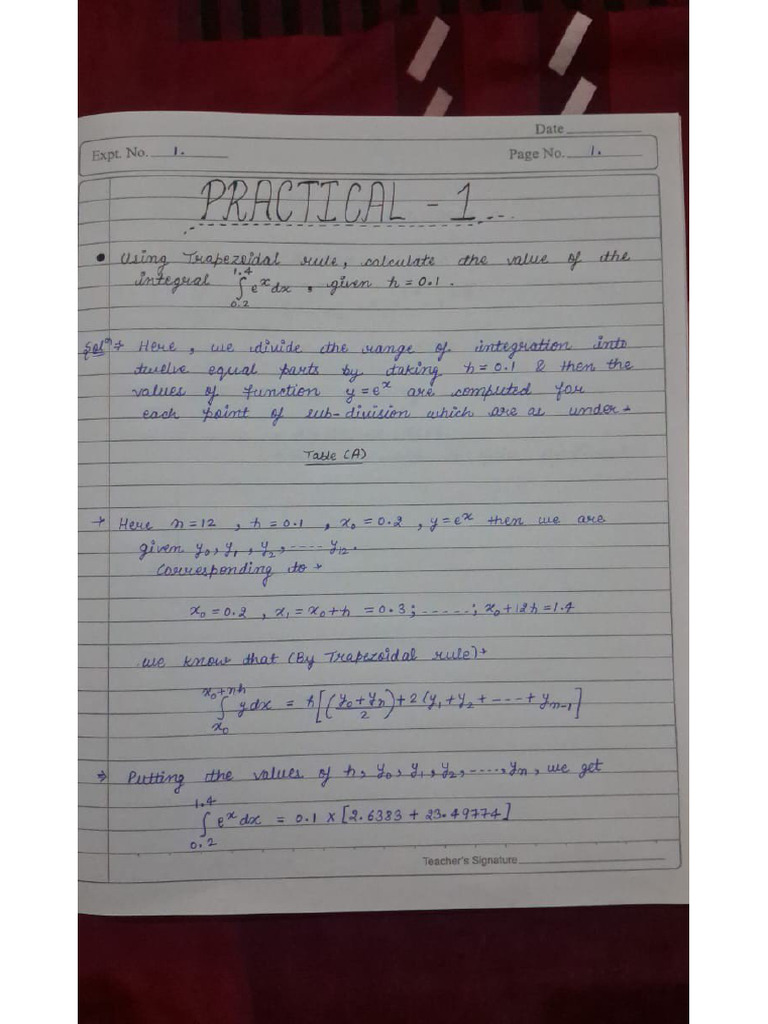 Date
Expt. No. 1.
Page No. 1.
PRACTICAL - 1
• Using Trapezoidal rule, calculate the value of the
integral ∫_{0.2}^{1.4} e^x dx, given h = 0.1.
Solⁿ → Here, we divide the range of integration into
twelve equal parts by taking h = 0.1 & then the
values of function y = e^x are computed for
each point of sub-division which are as under →
Table (A)
→ Here n = 12, h = 0.1, x₀ = 0.2, y = e^x then we are
given y₀, y₁, y₂, ..... y₁₂.
Corresponding to →
x₀ = 0.2, x₁ = x₀+h = 0.3; .....; x₀+12h = 1.4
we know that (By Trapezoidal rule) →
∫_{x₀}^{x₀+nh} y dx = h[(y₀+yₙ/2) + 2(y₁+y₂+---+yₙ₋₁]
⇒ Putting the values of h, y₀, y₁, y₂, ....., yₙ, we get
∫_{0.2}^{1.4} e^x dx = 0.1 × [2.6383 + 23.49774]
Teacher's Signature